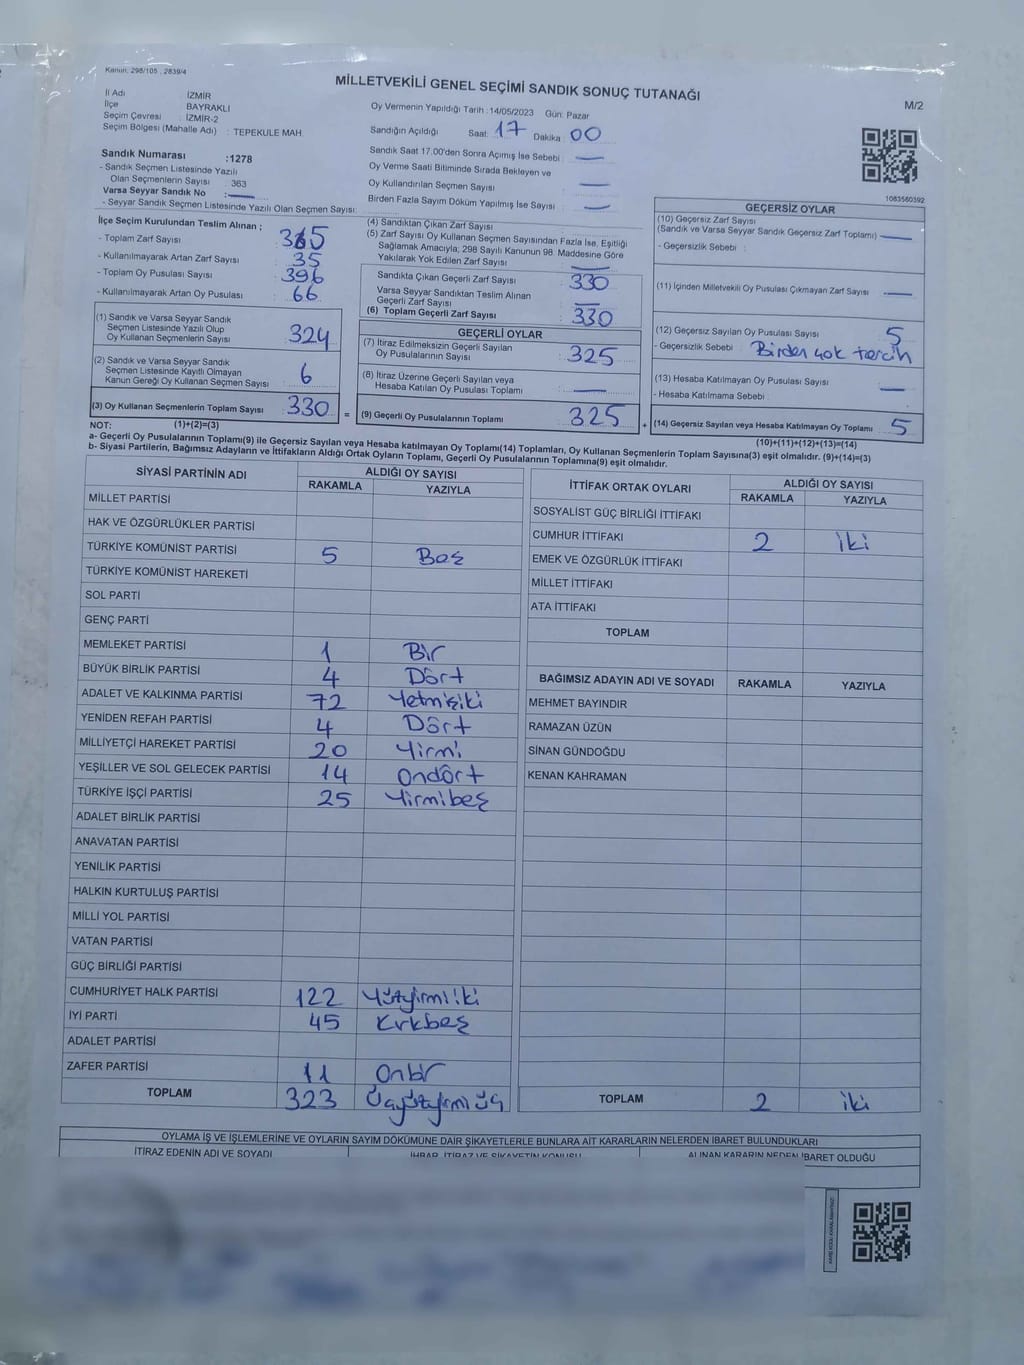 Kanun: 298/105 , 2839/4
MİLLETVEKİLİ GENEL SEÇİMİ SANDIK SONUÇ TUTANAĞI
M/2
İl Adı : İZMİR
İlçe : BAYRAKLI
Seçim Çevresi : İZMİR-2
Seçim Bölgesi (Mahalle Adı) : TEPEKULE MAH.
Oy Vermenin Yapıldığı Tarih :14/05/2023 Gün: Pazar
Sandığın Açıldığı Saat: 17 Dakika : 00
Sandık Saat 17.00'den Sonra Açımış İse Sebebi :
Oy Verme Saati Bitiminde Sırada Bekleyen ve
Oy Kullandırılan Seçmen Sayısı
Birden Fazla Sayım Döküm Yapılmış İse Sayısı :
Sandık Numarası :1278
- Sandık Seçmen Listesinde Yazılı
Olan Seçmenlerin Sayısı : 363
Varsa Seyyar Sandık No :
- Seyyar Sandık Seçmen Listesinde Yazılı Olan Seçmen Sayısı:
1083560392
İlçe Seçim Kurulundan Teslim Alınan ;
- Toplam Zarf Sayısı : 365
- Kullanılmayarak Artan Zarf Sayısı : 35
- Toplam Oy Pusulası Sayısı : 396
- Kullanılmayarak Artan Oy Pusulası : 66
(1) Sandık ve Varsa Seyyar Sandık
Seçmen Listesinde Yazılı Olup
Oy Kullanan Seçmenlerin Sayısı : 324
(2) Sandık ve Varsa Seyyar Sandık
Seçmen Listesinde Kayıtlı Olmayan
Kanun Gereği Oy Kullanan Seçmen Sayısı : 6
(3) Oy Kullanan Seçmenlerin Toplam Sayısı : 330 =
(4) Sandıktan Çıkan Zarf Sayısı
(5) Zarf Sayısı Oy Kullanan Seçmen Sayısından Fazla İse, Eşitliği
Sağlamak Amacıyla; 298 Sayılı Kanunun 98. Maddesine Göre
Yakılarak Yok Edilen Zarf Sayısı
Sandıkta Çıkan Geçerli Zarf Sayısı : 330
Varsa Seyyar Sandıktan Teslim Alınan
Geçerli Zarf Sayısı
(6) Toplam Geçerli Zarf Sayısı : 330
GEÇERLİ OYLAR
(7) İtiraz Edilmeksizin Geçerli Sayılan
Oy Pusulalarının Sayısı : 325
(8) İtiraz Üzerine Geçerli Sayılan veya
Hesaba Katılan Oy Pusulası Toplamı :
(9) Geçerli Oy Pusulalarının Toplamı : 325 +
GEÇERSİZ OYLAR
(10) Geçersiz Zarf Sayısı
(Sandık ve Varsa Seyyar Sandık Geçersiz Zarf Toplamı) :
- Geçersizlik Sebebi :
(11) İçinden Milletvekili Oy Pusulası Çıkmayan Zarf Sayısı :
(12) Geçersiz Sayılan Oy Pusulası Sayısı : 5
- Geçersizlik Sebebi : Birden çok tercih
(13) Hesaba Katılmayan Oy Pusulası Sayısı :
- Hesaba Katılmama Sebebi :
(14) Geçersiz Sayılan veya Hesaba Katılmayan Oy Toplamı : 5
NOT: (1)+(2)=(3)
(10)+(11)+(12)+(13)=(14)
a- Geçerli Oy Pusulalarının Toplamı(9) ile Geçersiz Sayılan veya Hesaba katılmayan Oy Toplamı(14) Toplamları, Oy Kullanan Seçmenlerin Toplam Sayısına(3) eşit olmalıdır. (9)+(14)=(3)
b- Siyasi Partilerin, Bağımsız Adayların ve İttifakların Aldığı Ortak Oyların Toplamı, Geçerli Oy Pusulalarının Toplamına(9) eşit olmalıdır.
SİYASİ PARTİNİN ADI ALDIĞI OY SAYISI
RAKAMLA YAZIYLA
MİLLET PARTİSİ
HAK VE ÖZGÜRLÜKLER PARTİSİ
TÜRKİYE KOMÜNİST PARTİSİ 5 Beş
TÜRKİYE KOMÜNİST HAREKETİ
SOL PARTİ
GENÇ PARTİ
MEMLEKET PARTİSİ 1 Bir
BÜYÜK BİRLİK PARTİSİ 4 Dört
ADALET VE KALKINMA PARTİSİ 72 Yetmişiki
YENİDEN REFAH PARTİSİ 4 Dört
MİLLİYETÇİ HAREKET PARTİSİ 20 Yirmi
YEŞİLLER VE SOL GELECEK PARTİSİ 14 Ondört
TÜRKİYE İŞÇİ PARTİSİ 25 Yirmibeş
ADALET BİRLİK PARTİSİ
ANAVATAN PARTİSİ
YENİLİK PARTİSİ
HALKIN KURTULUŞ PARTİSİ
MİLLİ YOL PARTİSİ
VATAN PARTİSİ
GÜÇ BİRLİĞİ PARTİSİ
CUMHURİYET HALK PARTİSİ 122 Yüzyirmiiki
İYİ PARTİ 45 Kırkbeş
ADALET PARTİSİ
ZAFER PARTİSİ 11 Onbir
TOPLAM 323 Üçyüzyirmiüç
İTTİFAK ORTAK OYLARI ALDIĞI OY SAYISI
RAKAMLA YAZIYLA
SOSYALİST GÜÇ BİRLİĞİ İTTİFAKI
CUMHUR İTTİFAKI 2 iki
EMEK VE ÖZGÜRLÜK İTTİFAKI
MİLLET İTTİFAKI
ATA İTTİFAKI
TOPLAM
BAĞIMSIZ ADAYIN ADI VE SOYADI RAKAMLA YAZIYLA
MEHMET BAYINDIR
RAMAZAN ÜZÜN
SİNAN GÜNDOĞDU
KENAN KAHRAMAN
TOPLAM 2 iki
OYLAMA İŞ VE İŞLEMLERİNE VE OYLARIN SAYIM DÖKÜMÜNE DAİR ŞİKAYETLERLE BUNLARA AİT KARARLARIN NELERDEN İBARET BULUNDUKLARI
İTİRAZ EDENİN ADI VE SOYADI İHBAR, İTİRAZ VE ŞİKAYETİN KONUSU ALINAN KARARIN NEDEN İBARET OLDUĞU